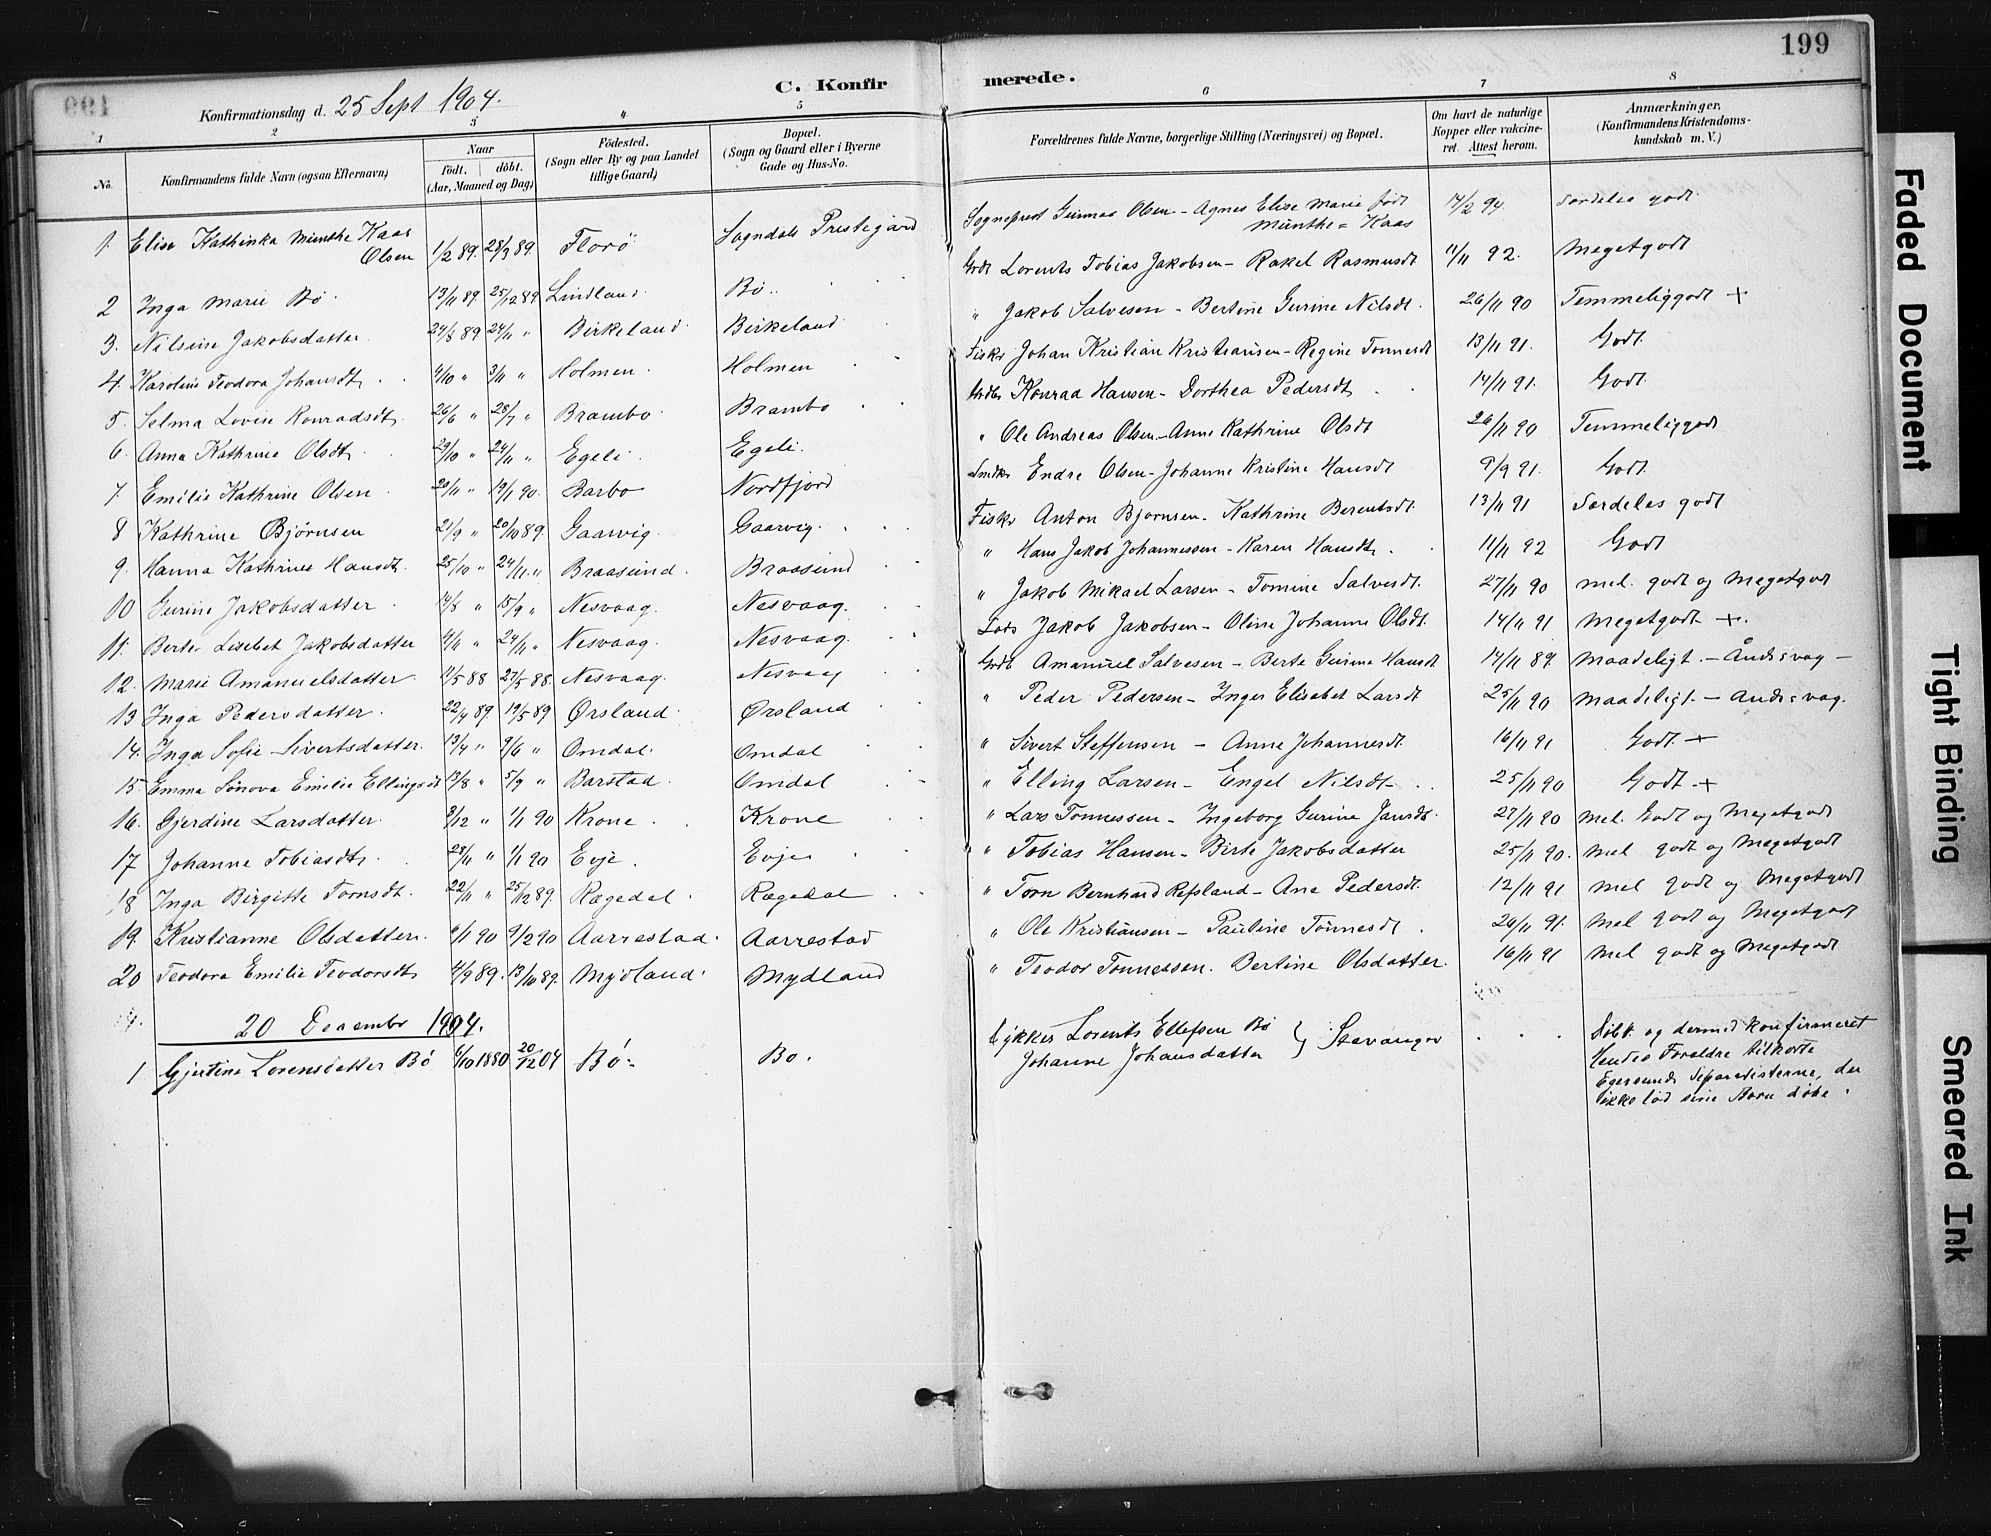 199
C. Konfirmerede.
Konfirmationsdag d. 25 Sept 1904.
1 2 3 4 5 6 7 8
No. Konfirmandens fulde Navn (ogsaa Efternavn) Naar født. døbt. (Aar, Maaned og Dag) Fødested. (Sogn eller By og paa Landet tillige Gaard) Bopæl. (Sogn og Gaard eller i Byerne Gade og Hus-No. Forældrenes fulde Navne, borgerlige Stilling (Næringsvei) og Bopæl. Om havt de naturlige Kopper eller vakcineret. Attest herom. Anmærkninger. (Konfirmandens Kristendomskundskab m. V.)
1. Elise Kathinka Munthe Kaas Olsen 1/2 89. 28/3 89. Florö Sogndals Prestegård Sogneprest Gunnar Olsen - Agnes Elise Marie född Munthe = Kaas 14/2 94 Særdeles godt
2 Inga Marie Bö 13/11 89. 25/12 89 Lindland Bö Grdb Lorents Tobias Jakobsen - Rakel Rasmusdt 11/11 92. Megetgodt
3. Nilsine Jakobsdatter 24/8 89 24/11 " Birkeland Birkeland " Jakob Salvesen - Bertine Gurine Nilsdt. 26/11 90 Temmeliggodt +
4 Karoline Teodora Johansdt. 4/10 " 3/11 " Holmen Holmen Fiskr Johan Kristian Kristiansen - Regine Tonnesdt 13/11 91. Godt
5. Selma Lovise Konradsdt. 26/6 " 28/7 " Brambo Brambo Grdbr Konrad Hansen - Dorthea Pedersdt 14/11 91. Godt
6. Anna Kathrine Olsdt. 29/10 " 24/11 " Egeli Egeli " Ole Andreas Olsen - Anne Kathrine Olsdt 26/11 90 Temmeliggodt
7. Emilie Kathrine Olsen 20/11 " 19/1 90. Barbo Nordfjord Smdkr Endre Olsen - Johanne Kristine Hansdt 9/9 91. Godt
8 Kathrine Bjørnsen 21/9 " 20/10 89. Gaarvig. Gaarvig. Fiskr Anton Bjørnsen - Kathrine Berentsdt. 13/11 91 Særdeles godt
9. Hanna Kathrine Hansdt. 25/10 " 24/11 " Braasund. Braasund " Hans Jakob Johannessen - Karen Hansdt. 11/11 92 Godt
10 Gurine Jakobsdatter 14/8 " 15/9 " Nesvaag. Nesvaag. " Jakob Mikael Larsen - Tomine Salvesdt. 27/11 90 mel. godt og Megetgodt
11. Berte Lisebet Jakobsdatter 4/11 " 24/11 " Nesvaag. Nesvaag. Lods Jakob Jakobsen - Oline Johanne Olsdt. 14/11 91 Megetgodt +.
12. Marie Amanuelsdatter 11/5 88 27/5 88. Nesvaag. Nesvaag Grdb. Amanuel Salvesen - Berte Gurine Hansdt 14/11 89. Maadeligt. - Åndssvag -
13 Inga Pedersdatter. 22/4 89. 19/5 89 Ørsland Ørsland " Peder Pedersen - Inger Elisabet Larsdt 25/11 90 Maadeligt. - Åndssvag.
14. Inga Sofie Sivertsdatter. 13/4 " 9/6 " Omdal. Omdal " Sivert Steffensen - Anne Johannesdt. 16/11 91 Godt +
15. Emma Sönova Emilie Ellingsdt 13/8 " 5/9 " Barstad. Omdal " Elling Larsen - Engel Nilsdt. 25/11 90 Godt +
16. Gjerdine Larsdatter. 3/12 " 1/1 90 Krone Krone " Lars Tonnessen - Ingeborg Gurine Jansdt. 27/11 90 Mel. Godt og Megetgodt
17 Johanne Tobiasdt. 23/11 " 1/1 90 Evje. Evje " Tobias Hansen - Birte Jakobsdatter 25/11 90. Mel godt og Megetgodt
18 Inga Birgitte Tomsdt. 22/11 " 25/12 89. Rægedal Rægedal " Tom Bernhard Refsland - Ane Pedersdt. 12/11 91 Mel godt og Megetgodt
19. Kristianne Olsdatter. 6/1 90 9/2 90 Aarrestad. Aarrestad " Ole Kristiansen - Pauline Tönnesdt 26/11 91. Mel godt og Megetgodt
20 Teodora Emilie Teodorsdt. 4/9 89. 13/10 89. Mydland. Mydland " Teodor Tonnessen. Bertine Olsdatter. 16/11 91 Mel godt og Megetgodt
20 December 1904.
1 Gjertine Lorensdatter Bö 6/10 1880 20/12 04 Bö Bo. Lorents Ellefsen Bö Johanne Johansdatter } Stavanger Döbt og dermed konfirmeret
Hendes Forældre tilhörte
Egersunds Separatisterne, der
ikke lod sine Børn döbe.
Faded Document
Tight Binding
Smeared Ink